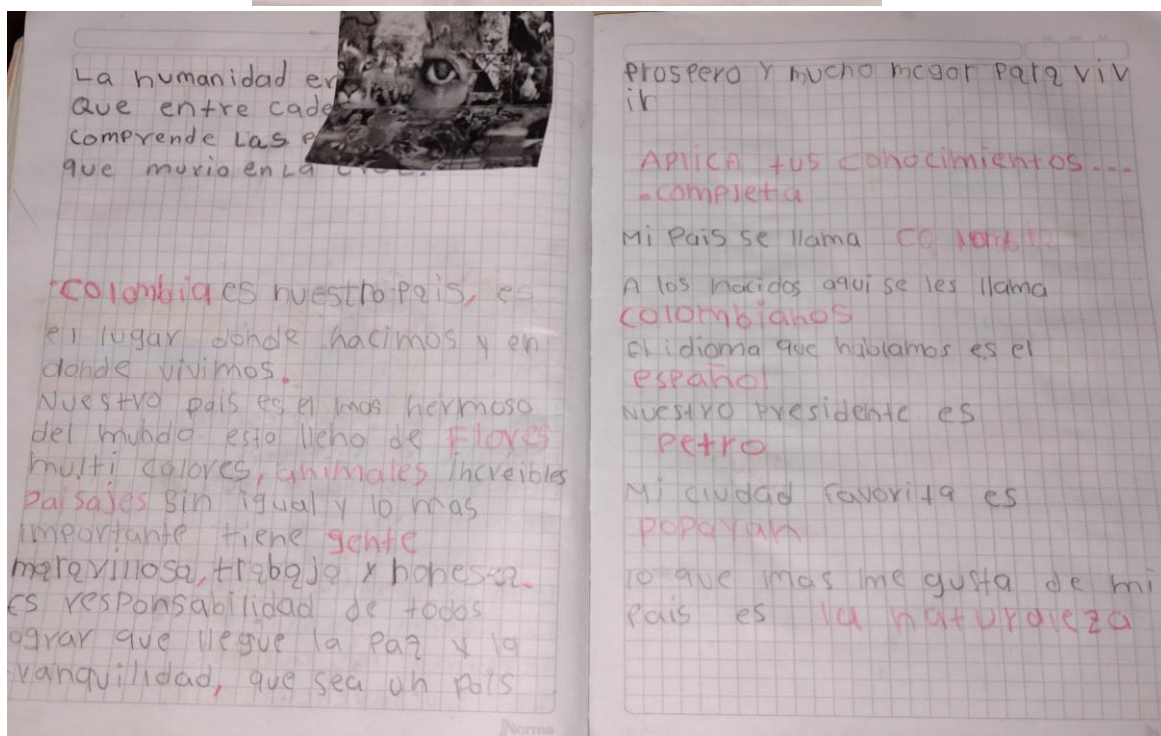 La humanidad
Que entre
comprende Las
que murio en La
colombia es nuestro pais, es
el lugar donde nacimos y en
donde vivimos.
Nuestro pais es el mas hermoso
del mundo esta lleno de Flores
multi colores, animales increibles
paisajes sin igual y lo mas
importante tiene gente
maravillosa, trabaja y honesta.
Es responsabilidad de todos
ograr que llegue la paz y la
ranquilidad, que sea un pais
Norma
prospero y mucho megor para viv
ir
APlicA tus conocimientos...
.completa
Mi Pais se llama colombia
A los nacidos aqui se les llama
colombianos
El idioma que hablamos es el
español
Nuestro Presidente es
Petro
Mi ciudad favorita es
popayan
lo que mas me gusta de mi
pais es la naturaleza